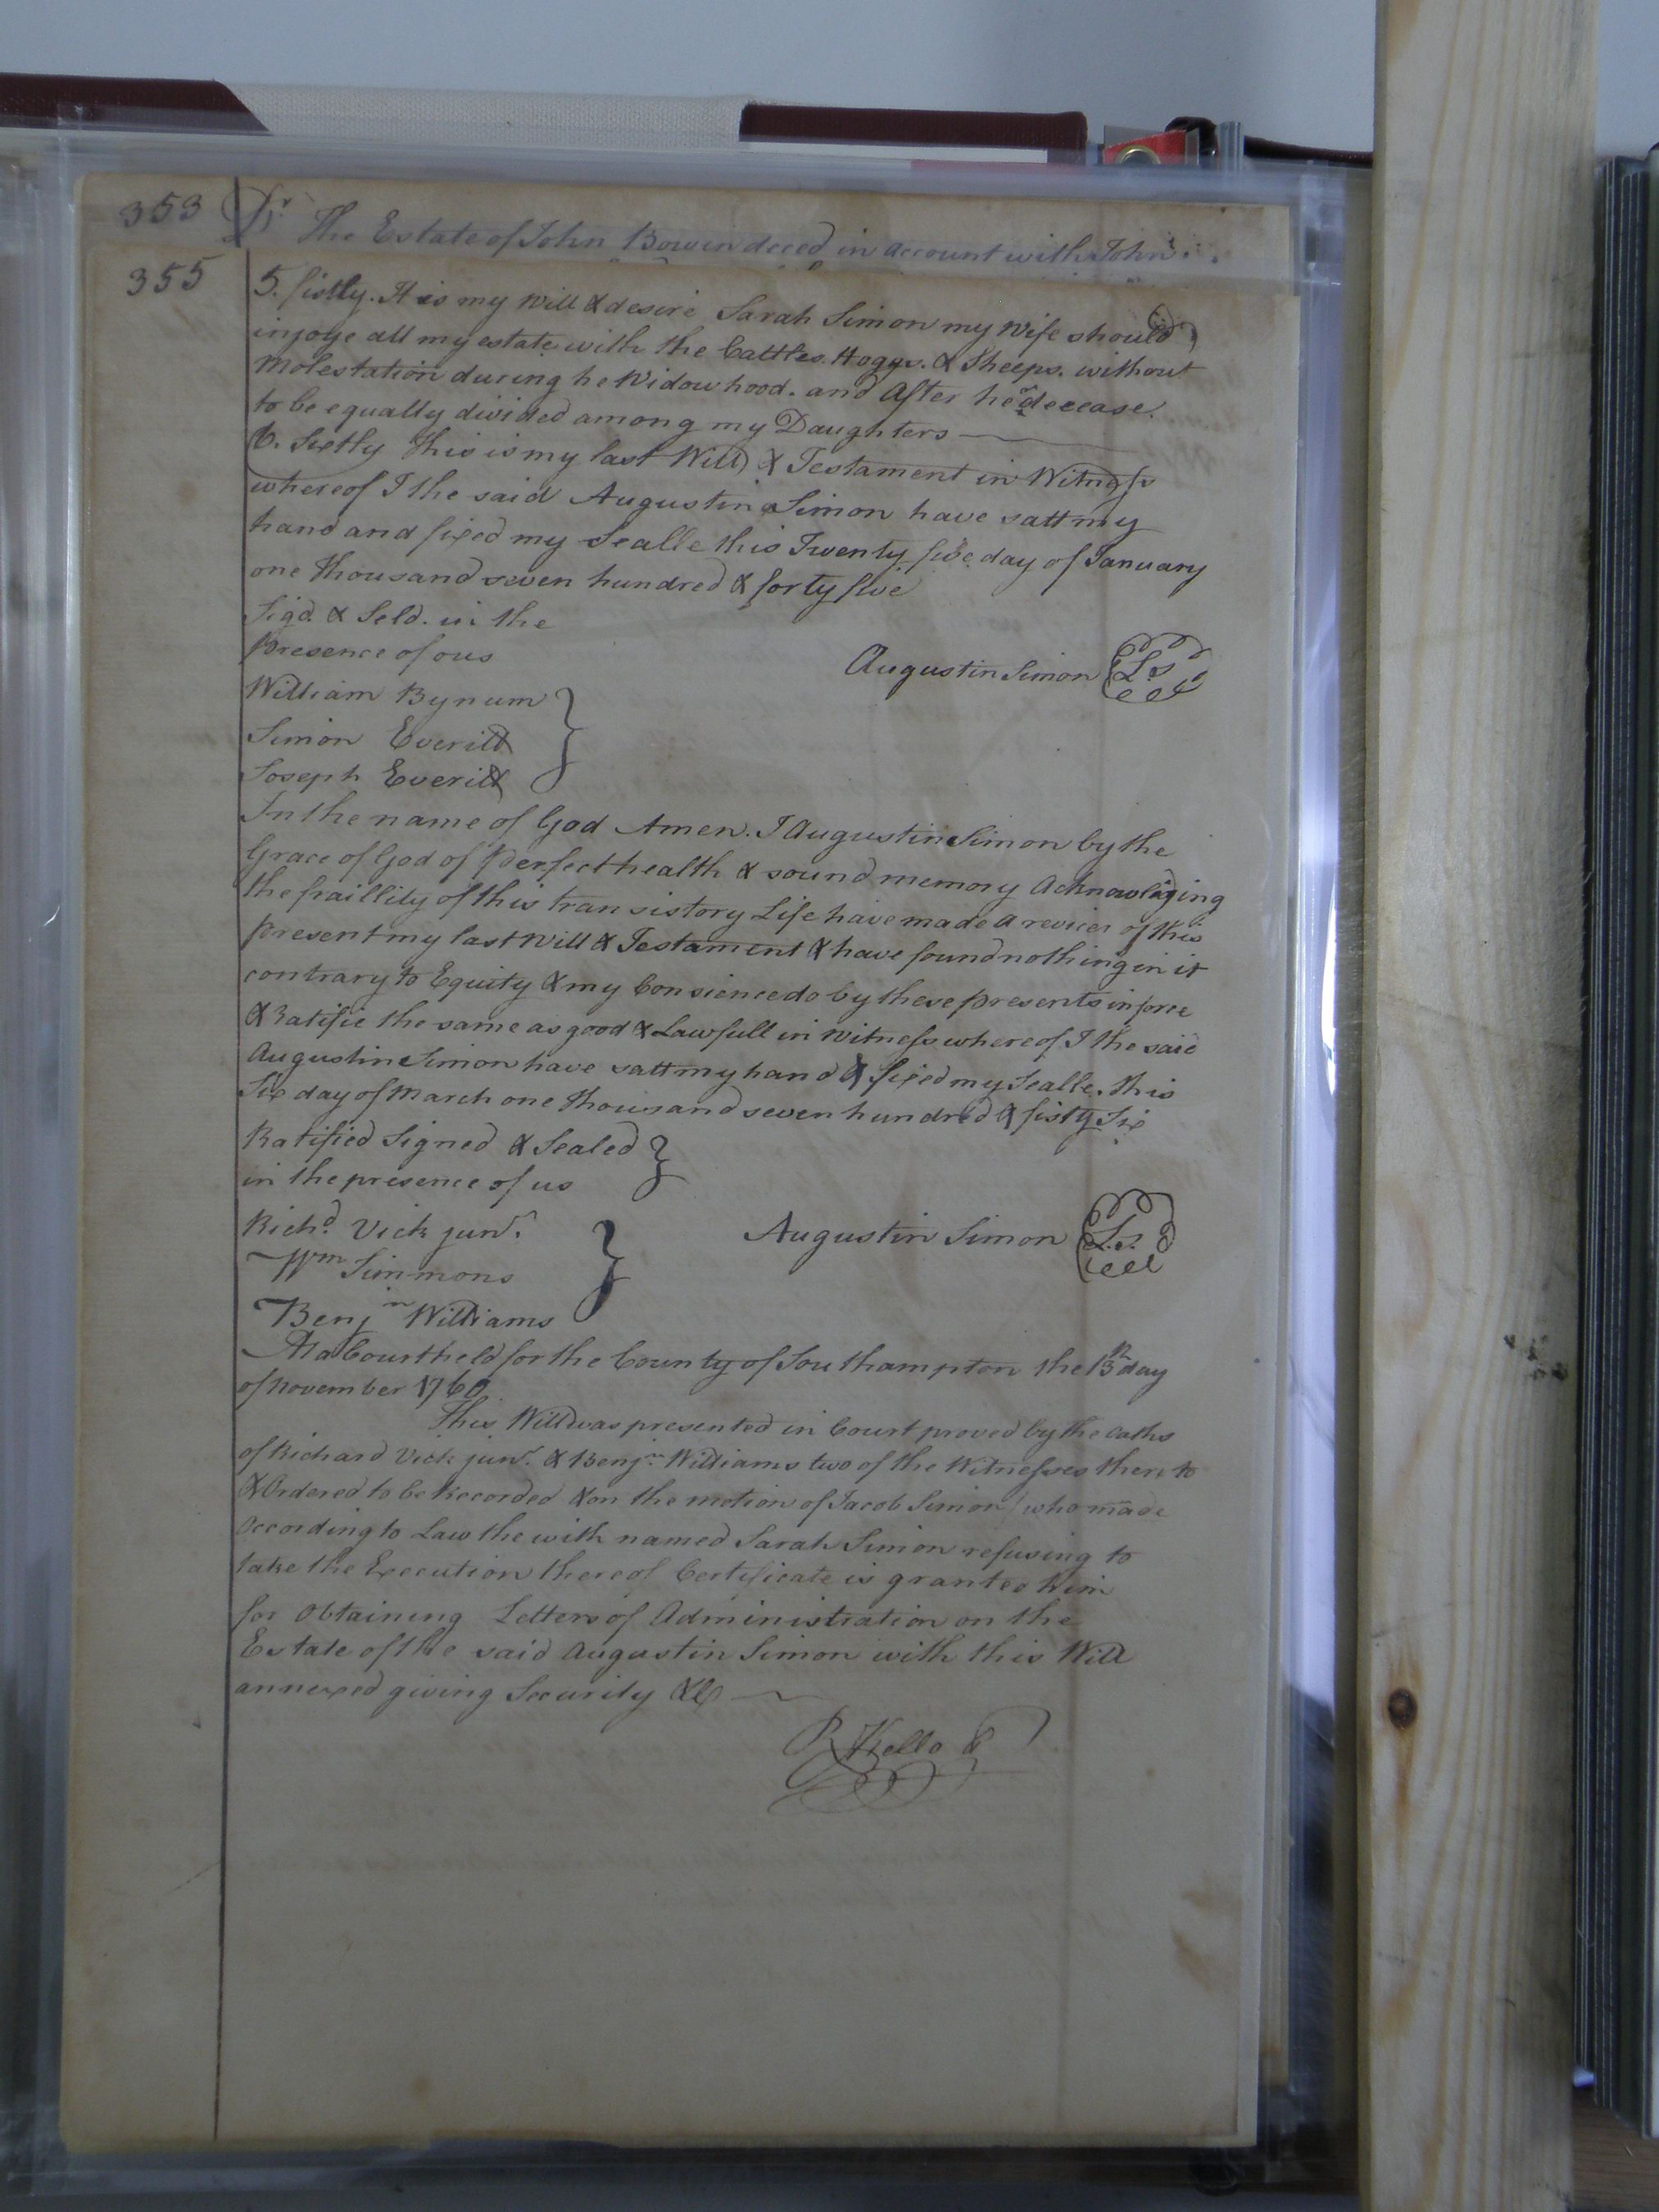 353 Dr. The Estate of John Bowen deced in account with John
355
5. fiftly. It is my Will & desire Sarah Simon my Wife should
injoye all my estate with the Cattles. Hoggs. & Sheeps. without
Molestation during he Widowhood. and After her decease.
to be equally divided among my Daughters
6. Sixtly this is my last Will & Testament in Witness
whereof I the said Augustin Simon have satt my
hand and fixed my Sealle this Twenty five day of January
one thousand seven hundred & forty five
Sigd. & Seld. in the
Presence of ous
Augustin Simon Ls
William Bynum
Simon Everitt
Joseph Everitt
In the name of God Amen. I Augustin Simon by the
Grace of God of perfect health & sound memory Acknowledging
the fraillity of this transistory Life have made a review of this
present my last Will & Testament & have found nothing in it
contrary to Equity & my Consience do by these presents inforce
& Ratifie the same as good & Lawfull in witness whereof I the said
Augustin Simon have satt my hand & fixed my Sealle. this
Six day of March one thousand seven hundred & fifty Six
Ratified Signed & Sealed
in the presence of us
Richd. Vick junr.
Augustin Simon L.s.
Wm Simmons
Benjn Williams
At a Court held for the County of Southampton the 13th day
of November 1760
This Will was presented in Court proved by the oaths
of Richard Vick junr. & Benjn. Williams two of the Witnesses thereto
& Ordered to be Recorded & on the motion of Jacob Simon who made
according to Law the with named Sarah Simon refusing to
take the Execution thereof Certificate is granted him
for Obtaining Letters of Administration on the
Estate of the said Augustin Simon with this Will
annexed giving Security &C
R Kello